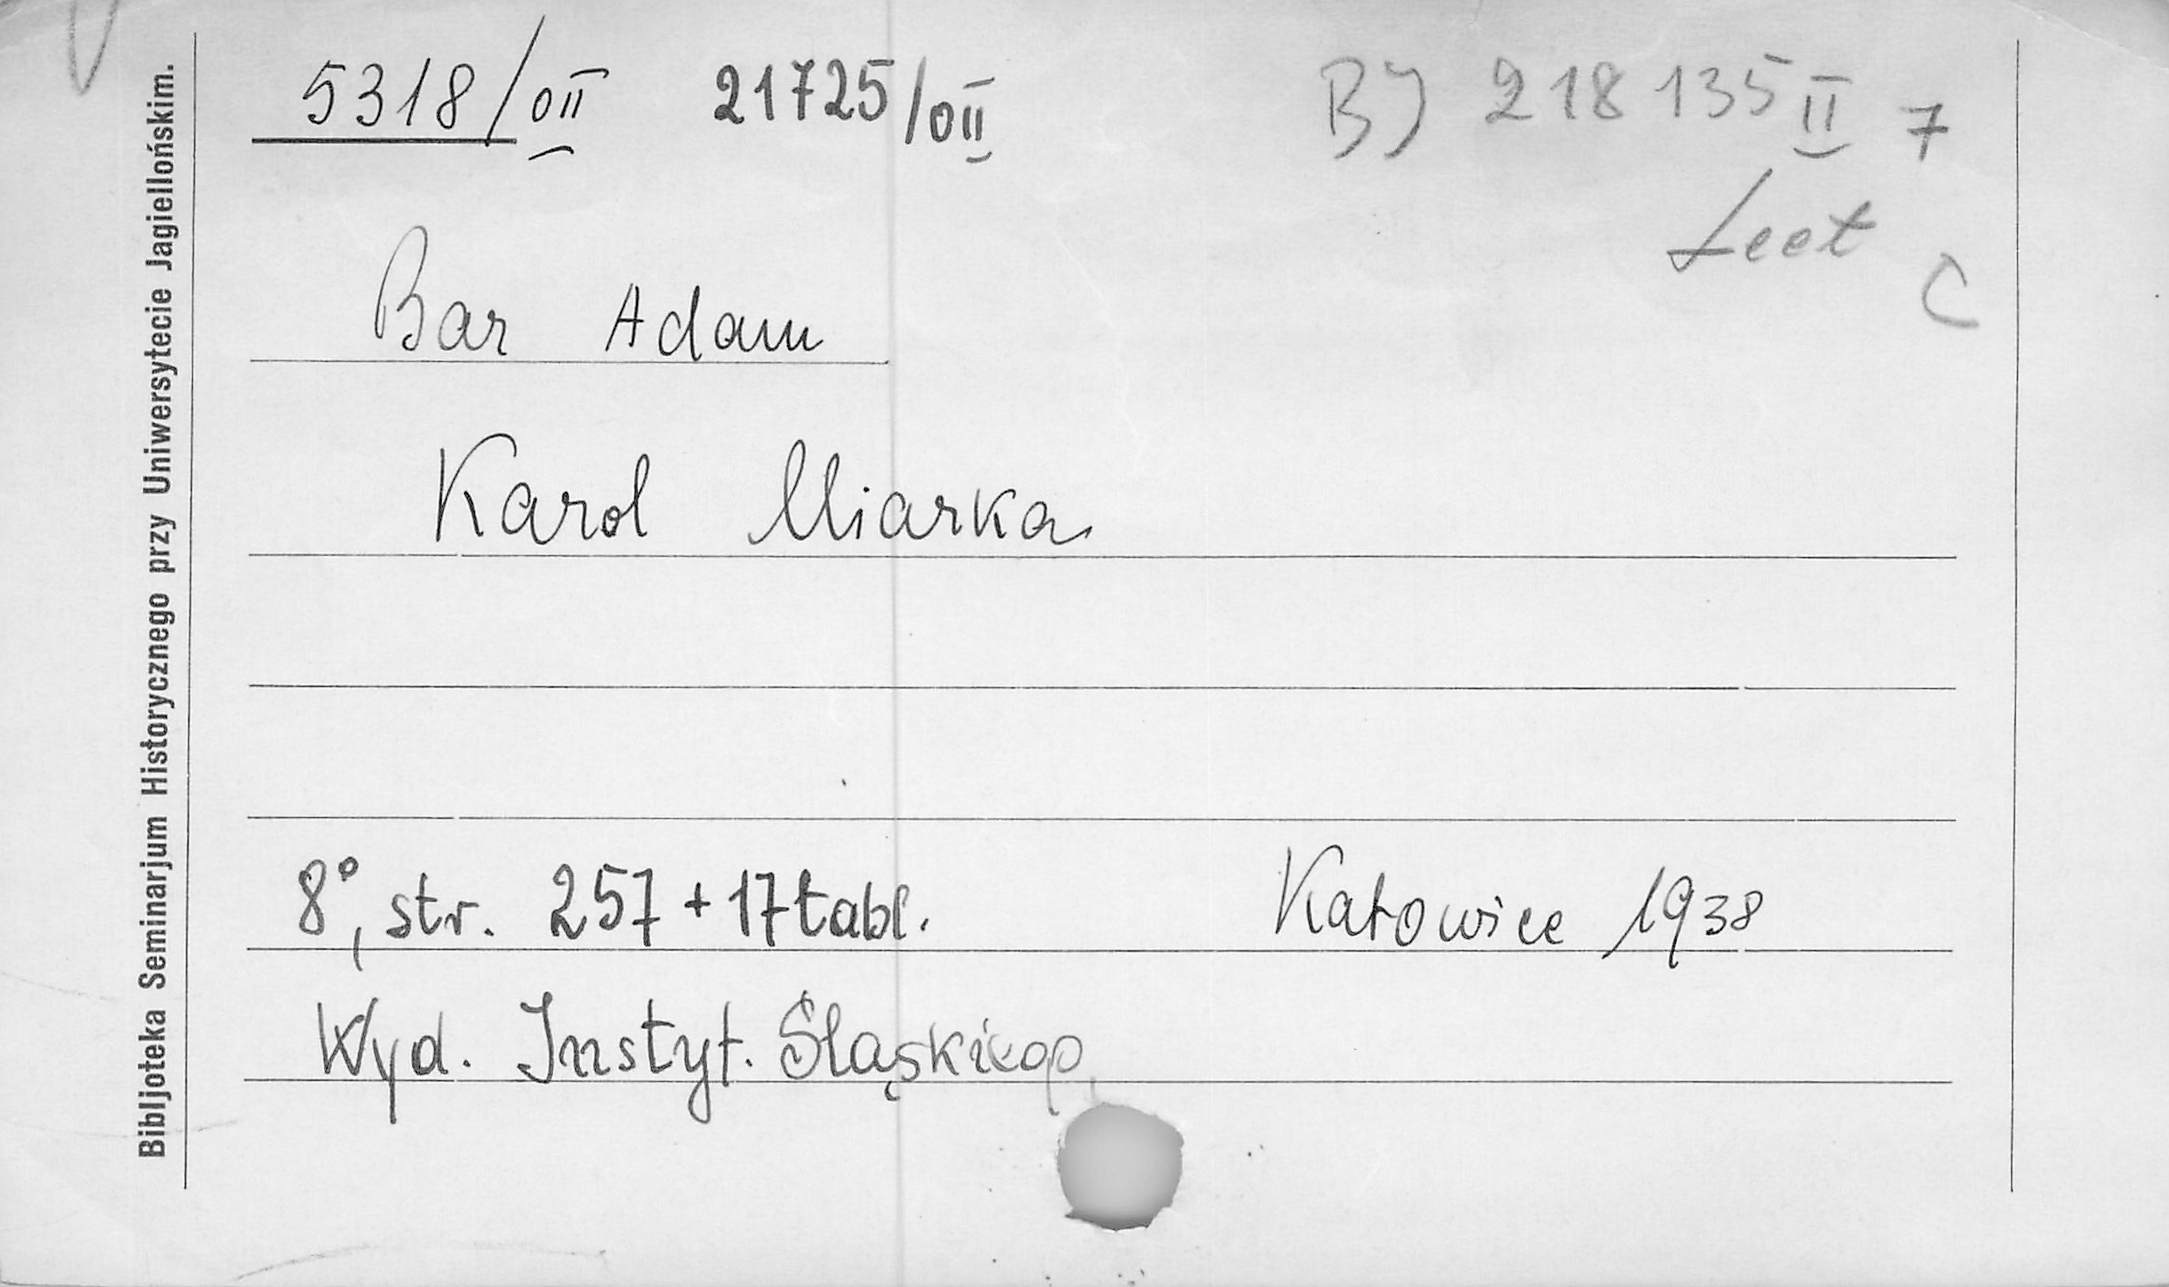 5318/0II 21725/0II BJ 218 135 II 7
Lect C
Bar Adam
Karol Miarka
8°, str. 257 + 17 tabl. Katowice 1938
Wyd. Instyt. Śląskiego
Bibljoteka Seminarjum Historycznego przy Uniwersytecie Jagiellońskim.